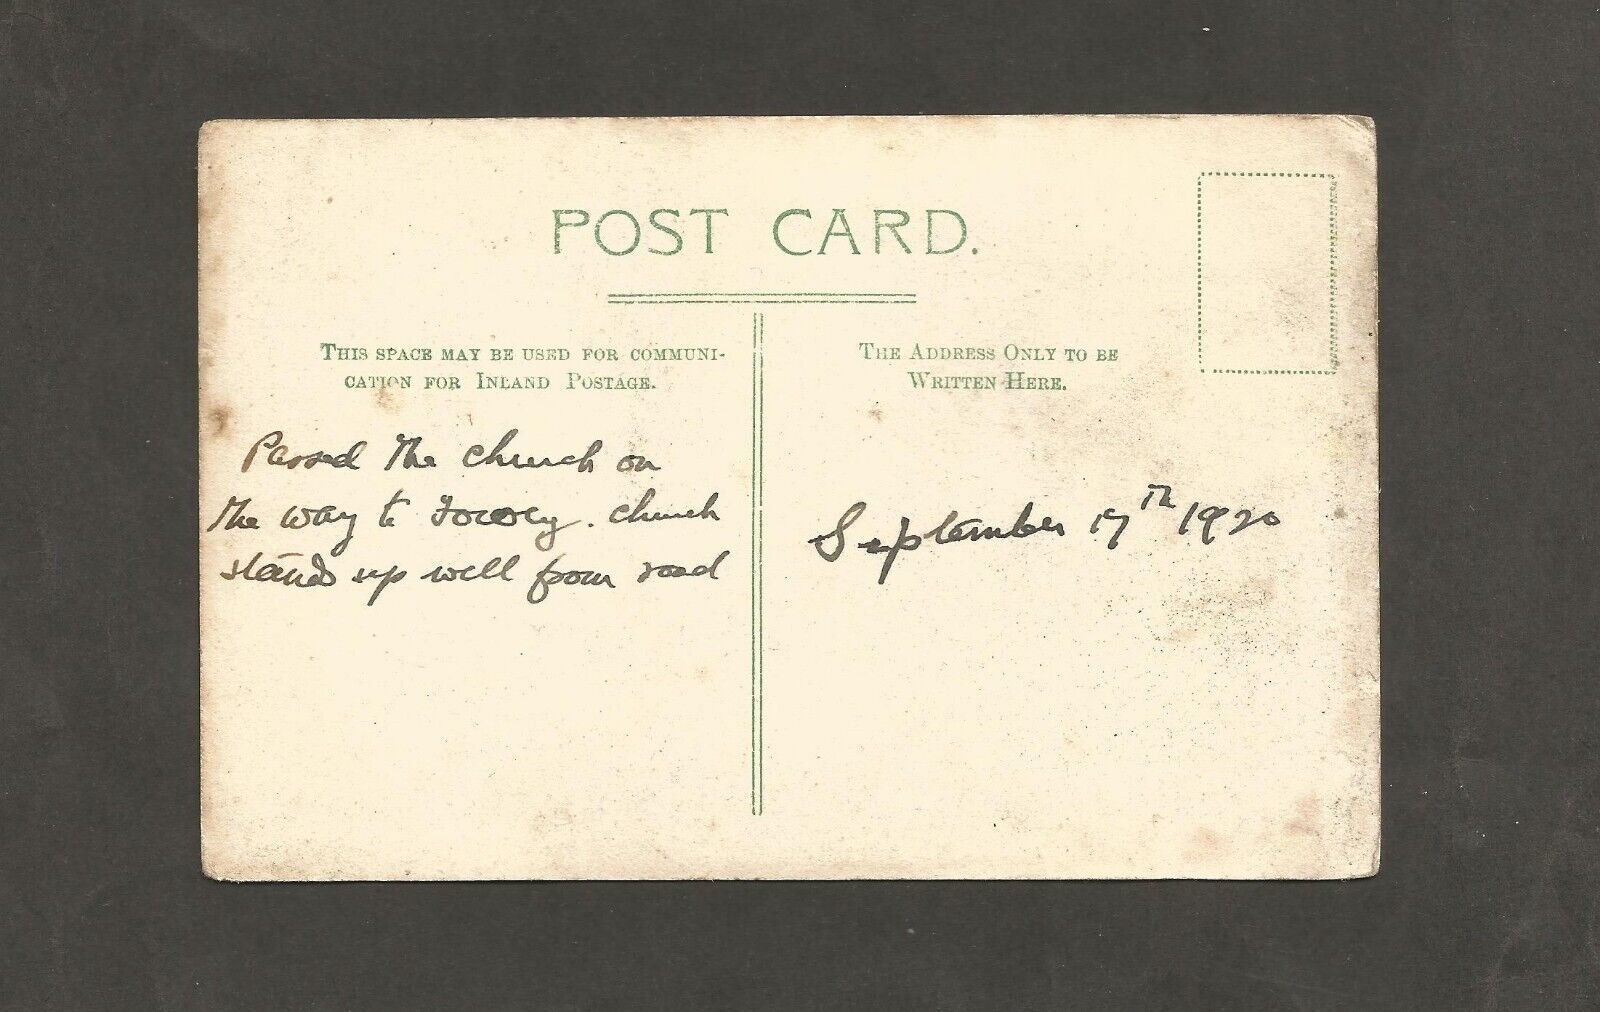 POST CARD.
THIS SPACE MAY BE USED FOR COMMUNI-
CATION FOR INLAND POSTAGE.
THE ADDRESS ONLY TO BE
WRITTEN HERE.
Passed the church on
the way to Fowey. Church
stands up well from road
September 17th 1920